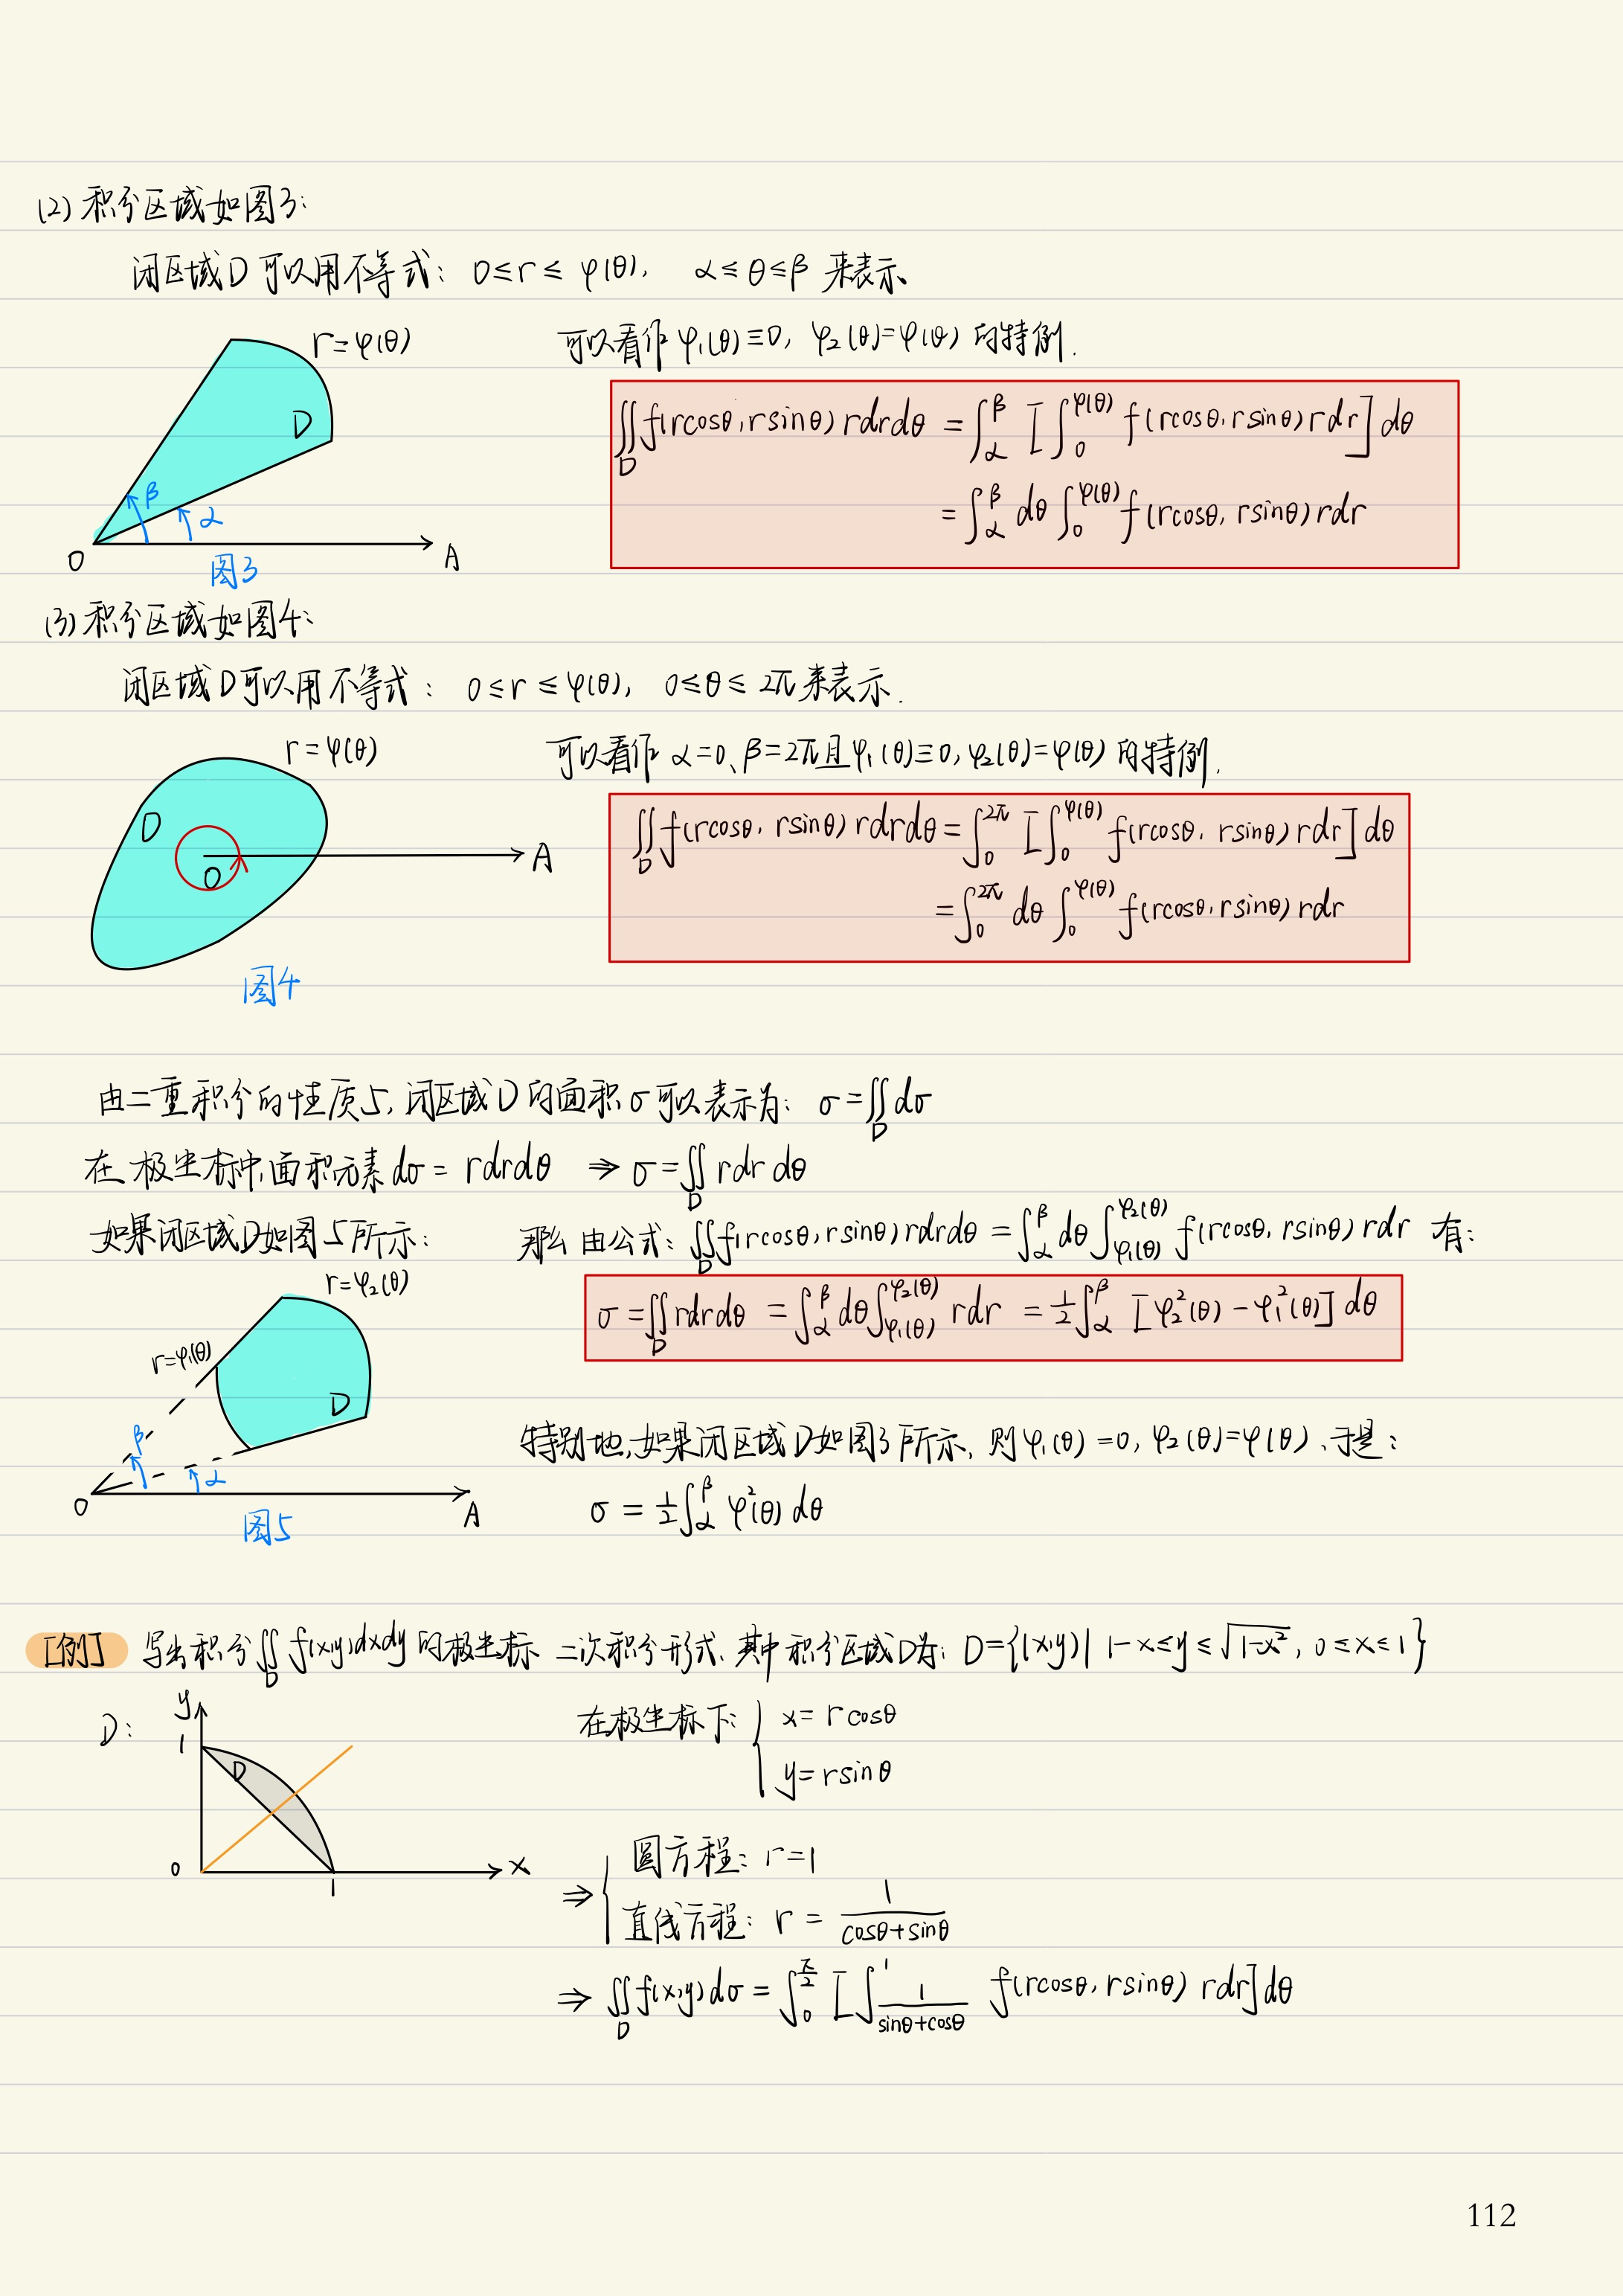 (2) 积分区域如图3:
闭区域D可以用不等式: 0≤r≤φ(θ), α≤θ≤β 来表示
r=φ(θ)
可以看作 φ₁(θ)≡0, φ₂(θ)=φ(θ) 的特例.
D
∬_D f(rcosθ, rsinθ) rdrdθ = ∫_α^β [∫_0^{φ(θ)} f(rcosθ, rsinθ) rdr] dθ
= ∫_α^β dθ ∫_0^{φ(θ)} f(rcosθ, rsinθ) rdr
β
α
O
A
图3
(3) 积分区域如图4:
闭区域D可以用不等式: 0≤r≤φ(θ), 0≤θ≤2π 来表示.
r=φ(θ)
可以看作 α=0、β=2π且φ₁(θ)≡0, φ₂(θ)=φ(θ) 的特例.
D
O
A
∬_D f(rcosθ, rsinθ) rdrdθ = ∫_0^{2π} [∫_0^{φ(θ)} f(rcosθ, rsinθ) rdr] dθ
= ∫_0^{2π} dθ ∫_0^{φ(θ)} f(rcosθ, rsinθ) rdr
图4
由二重积分的性质5, 闭区域D的面积σ可以表示为: σ=∬_D dσ
在极坐标中, 面积元素 dσ = rdrdθ ⇒ σ=∬_D rdrdθ
如果闭区域D如图5所示: 那么由公式: ∬_D f(rcosθ, rsinθ) rdrdθ = ∫_α^β dθ ∫_{φ₁(θ)}^{φ₂(θ)} f(rcosθ, rsinθ) rdr 有:
r=φ₂(θ)
σ = ∬_D rdrdθ = ∫_α^β dθ ∫_{φ₁(θ)}^{φ₂(θ)} rdr = ½∫_α^β [φ₂²(θ) - φ₁²(θ)] dθ
r=φ₁(θ)
D
β
α
O
A
图5
特别地, 如果闭区域D如图3所示, 则φ₁(θ)=0, φ₂(θ)=φ(θ). 于是:
σ = ½∫_α^β φ²(θ) dθ
[例] 写出积分∬_D f(x,y)dxdy 的极坐标二次积分形式, 其中积分区域D为: D={(x,y)| 1-x≤y≤√(1-x²), 0≤x≤1}
D:
y
1
D
0
1
x
在极坐标下: { x= rcosθ
y= rsinθ
⇒ { 圆方程: r=1
直线方程: r = 1/(cosθ+sinθ)
⇒ ∬_D f(x,y)dσ = ∫_0^{π/2} [∫_{1/(sinθ+cosθ)}^1 f(rcosθ, rsinθ) rdr] dθ
112